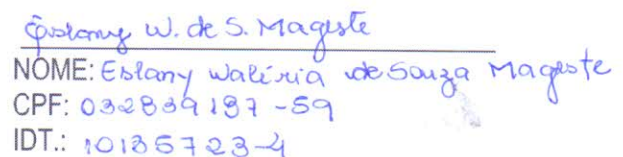 Eslany W. de S. Mageste
NOME: Eslany Waléria de Souza Mageste
CPF: 032839197-59
IDT.: 10135723-4